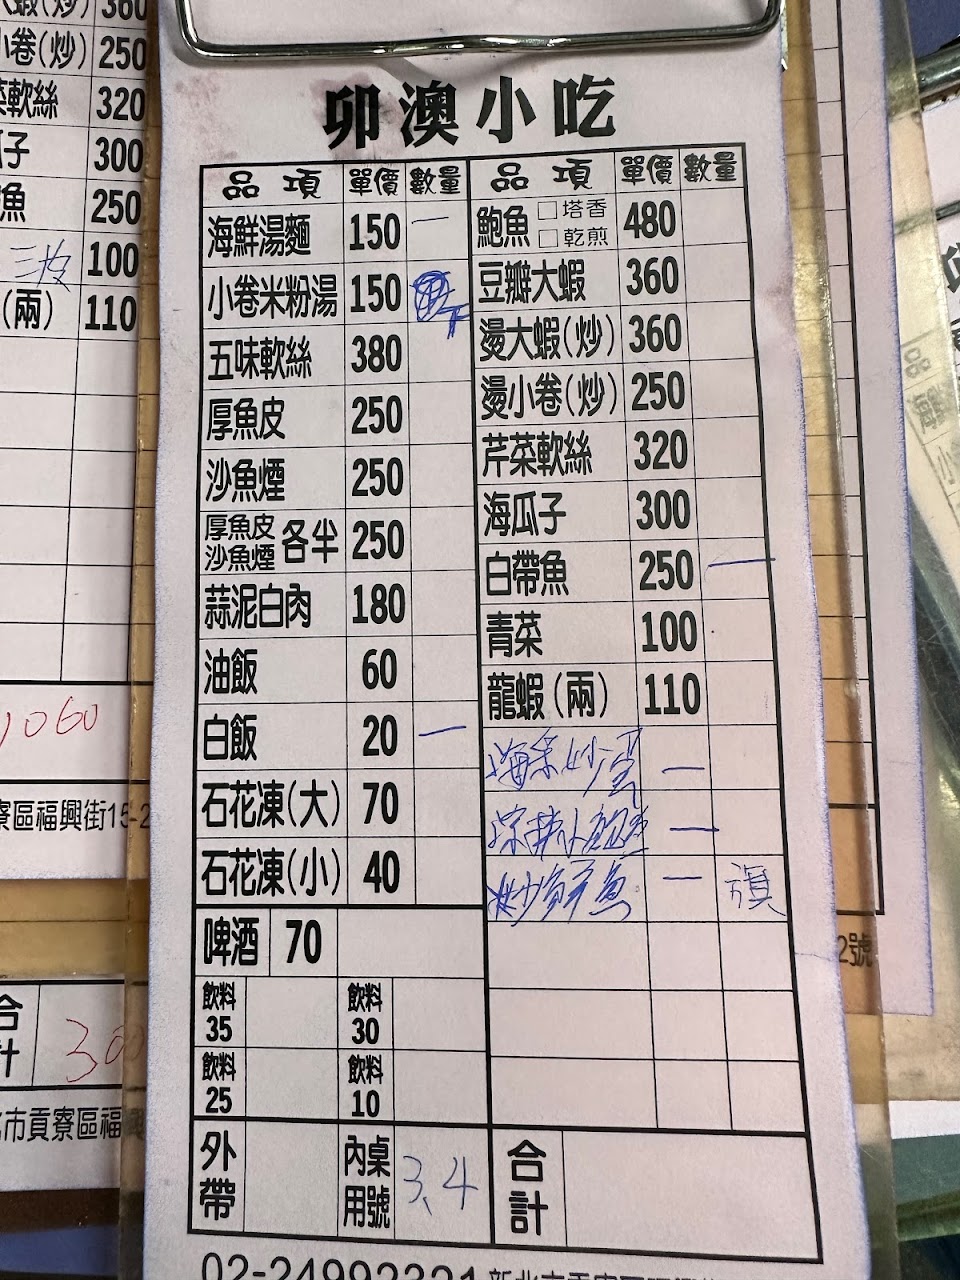 卯澳小吃
品項 單價 數量
海鮮湯麵 150 一
小卷米粉湯 150
五味軟絲 380
厚魚皮 250
沙魚煙 250
厚魚皮
沙魚煙 各半 250
蒜泥白肉 180
油飯 60
白飯 20 一
石花凍(大) 70
石花凍(小) 40
啤酒 70
飲料 35 飲料 30
飲料 25 飲料 10
外帶 內桌用號 3、4
品項 單價 數量
鮑魚 □塔香 □乾煎 480
豆瓣大蝦 360
燙大蝦(炒) 360
燙小卷(炒) 250
芹菜軟絲 320
海瓜子 300
白帶魚 250 一
青菜 100
龍蝦(兩) 110
海菜炒蛋 一
一
炒鮮魚 一 旗
合計
02-24992321
(炒) 360
小卷(炒) 250
菜軟絲 320
子 300
魚 250
三波 100
(兩) 110
1060
寮區福興街15-2
合計 300
市貢寮區福興
2號